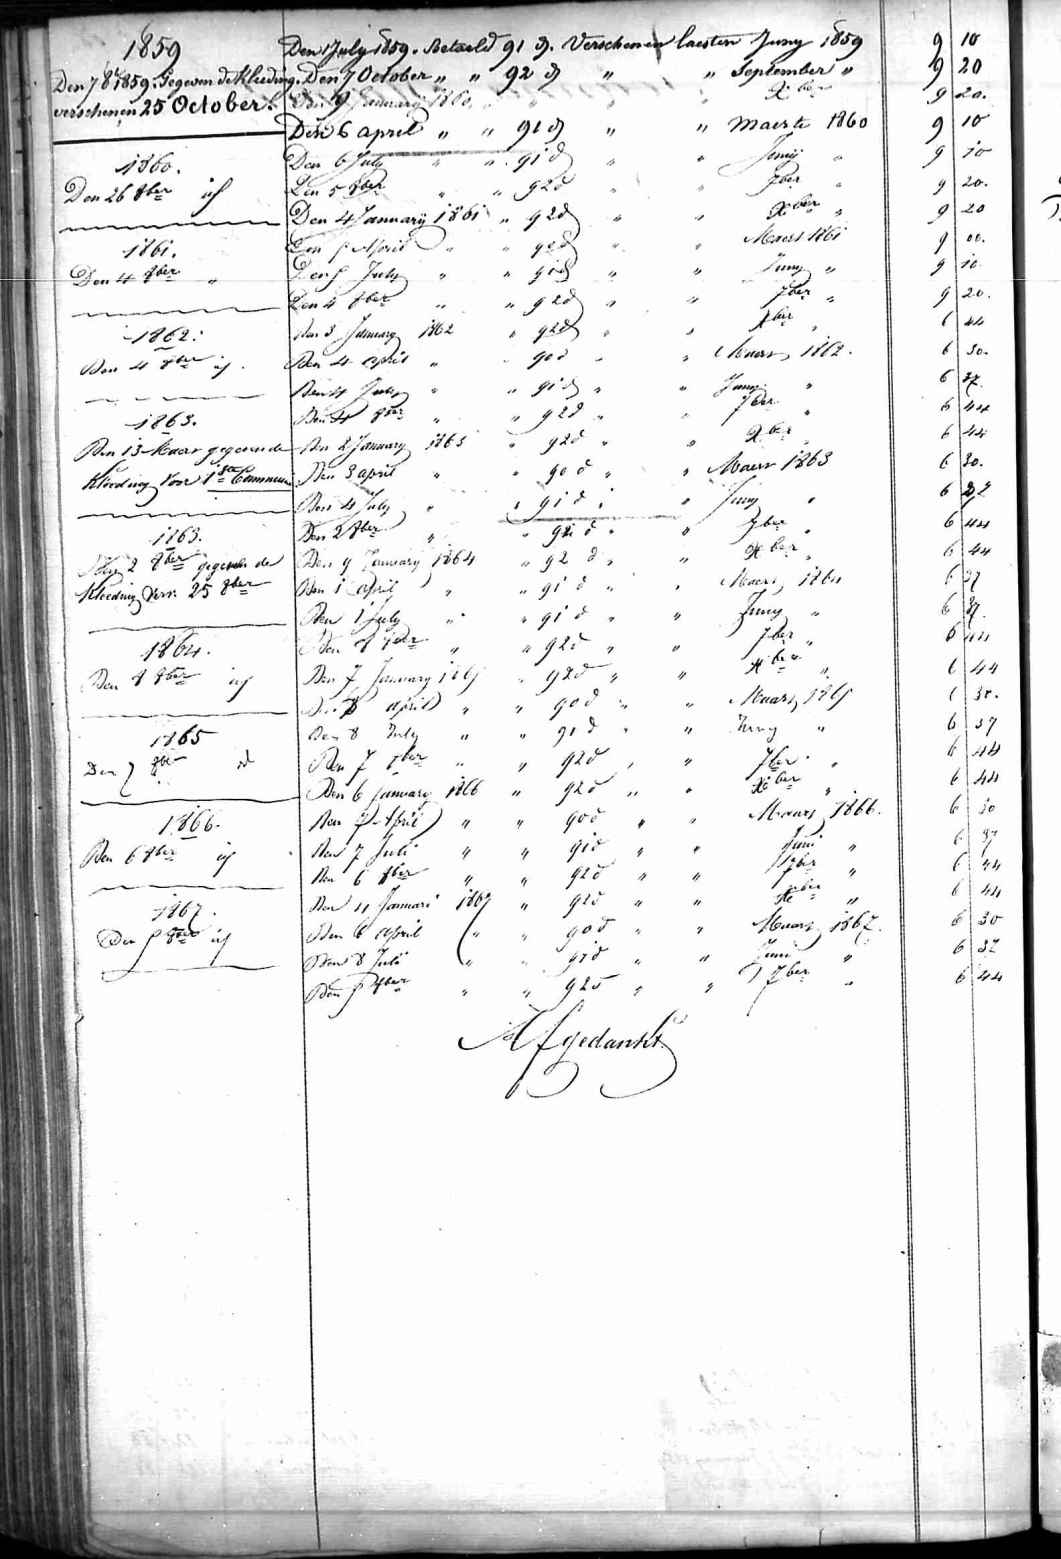 1859
Den 7 8 1859. Gegeven de Kleeding
verschenen 25 October.
1860.
Den 26 8ber
1861.
Den 4 8ber "
1862.
Den 4 8ber
1863.
Den 13 Maar gegeven de
Kleeding voor 1ste Commun
1863.
Den 2 8ber gegeven de
Kleeding Vers. 25 8ber
1864.
Den 8 8ber
1865
Den 7 8ber
1866.
Den 6 8ber
1867.
Den 5 8ber
Den 1 July 1859. Betaeld 91 d. Verschenen laesten Juny 1859 9 10
Den 7 October " " 92 d " " September " 9 20
Den 9 January 1860 " " " " Xber 9 20.
Den 6 april " " 91 d " " Maerte 1860 9 10
Den 6 July " " 91 d " " Junij " 9 10
Den 5 8ber " " 92 d " " 7ber " 9 20.
Den 4 Januarij 1861 " 92 d " " Xber " 9 20
Den 5 April " " 90 d " " Maert 1861 9 00.
Den 5 July " " 91 d " " Juny " 9 10
Den 4 8ber " " 92 d " " 7ber " 9 20.
Den 3 January 1862 " 92 d " " Xber " 6 44
Den 4 april " " 90 d " " Maert 1862. 6 30.
Den 4 July " " 91 d " " Juny " 6 37
Den 4 8ber " " 92 d " " 7ber " 6 44
Den 2 January 1863 " 92 d " " Xber " 6 44
Den 3 april " " 90 d " " Maert 1863 6 30.
Den 4 July " " 91 d " " Juny " 6 37
Den 2 8ber " " 92 d " " 7ber " 6 44
Den 9 January 1864 " 92 d " " Xber " 6 44
Den 1 april " " 91 d " " Maert 1864 6 37
Den 1 July " " 91 d " " Juny " 6 37.
Den 8 8ber " " 92 d " " 7ber " 6 44
Den 7 January 1865 " 92 d " " Xber " 6 44
Den 8 april " " 90 d " " Maart 1865 6 30.
Den 8 July " " 91 d " " Juny " 6 37
Den 7 8ber " " 92 d " " 7ber " 6 44
Den 6 January 1866 " 92 d " " Xber " 6 44
Den 7 April " " 90 d " " Maart 1866. 6 30
Den 7 Juli " " 91 d " " Juni " 6 37
Den 6 8ber " " 92 d " " 7ber " 6 44
Den 4 Januari 1867 " 92 d " " Xber " 6 44
Den 6 april " " 90 d " " Maart 1867. 6 30
Den 8 Juli " " 91 d " " Juni " 6 37
Den 5 8ber " " 92 d " " 7ber " 6 44
Afgedankt.